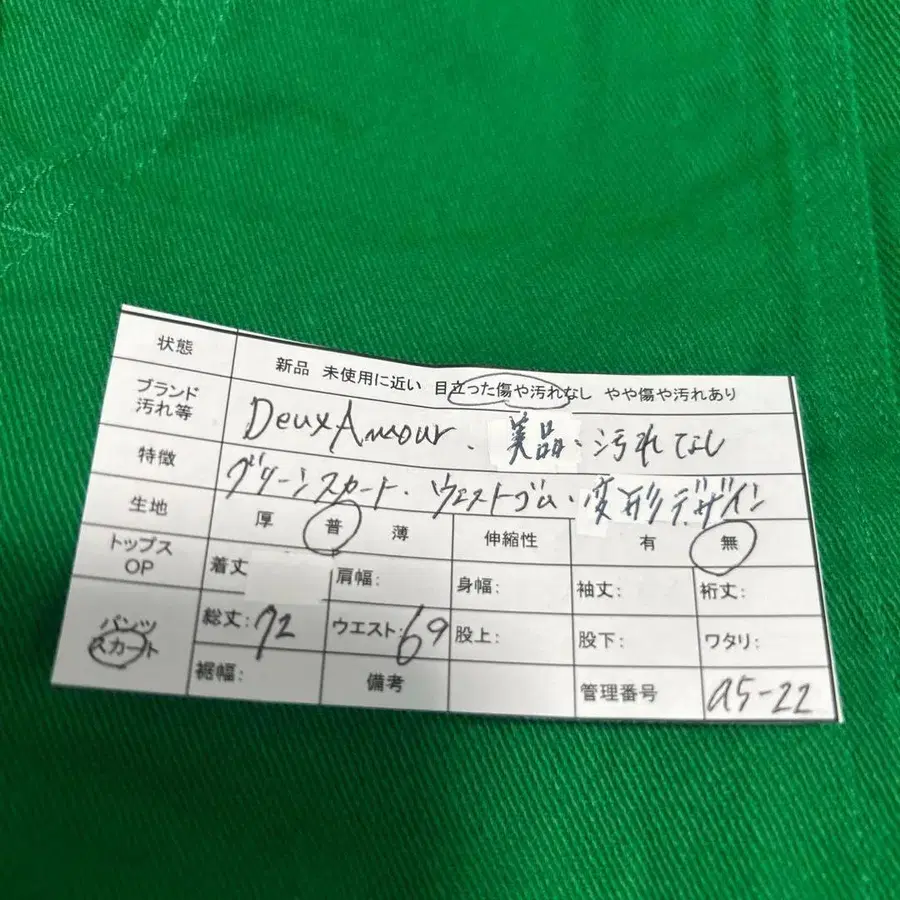 状態 新品 未使用に近い 目立った傷や汚れなし やや傷や汚れあり
ブランド 汚れ等 Deux Amour. 美品・汚れなし
特徴 グリーンスカート・ウエストゴム・変形デザイン
生地 厚 普 薄 伸縮性 有 無
トップス OP 着丈 肩幅: 身幅: 袖丈: 裄丈:
パンツ スカート 総丈: 72 ウエスト: 69 股上: 股下: ワタリ:
裾幅: 備考 管理番号 a5-22